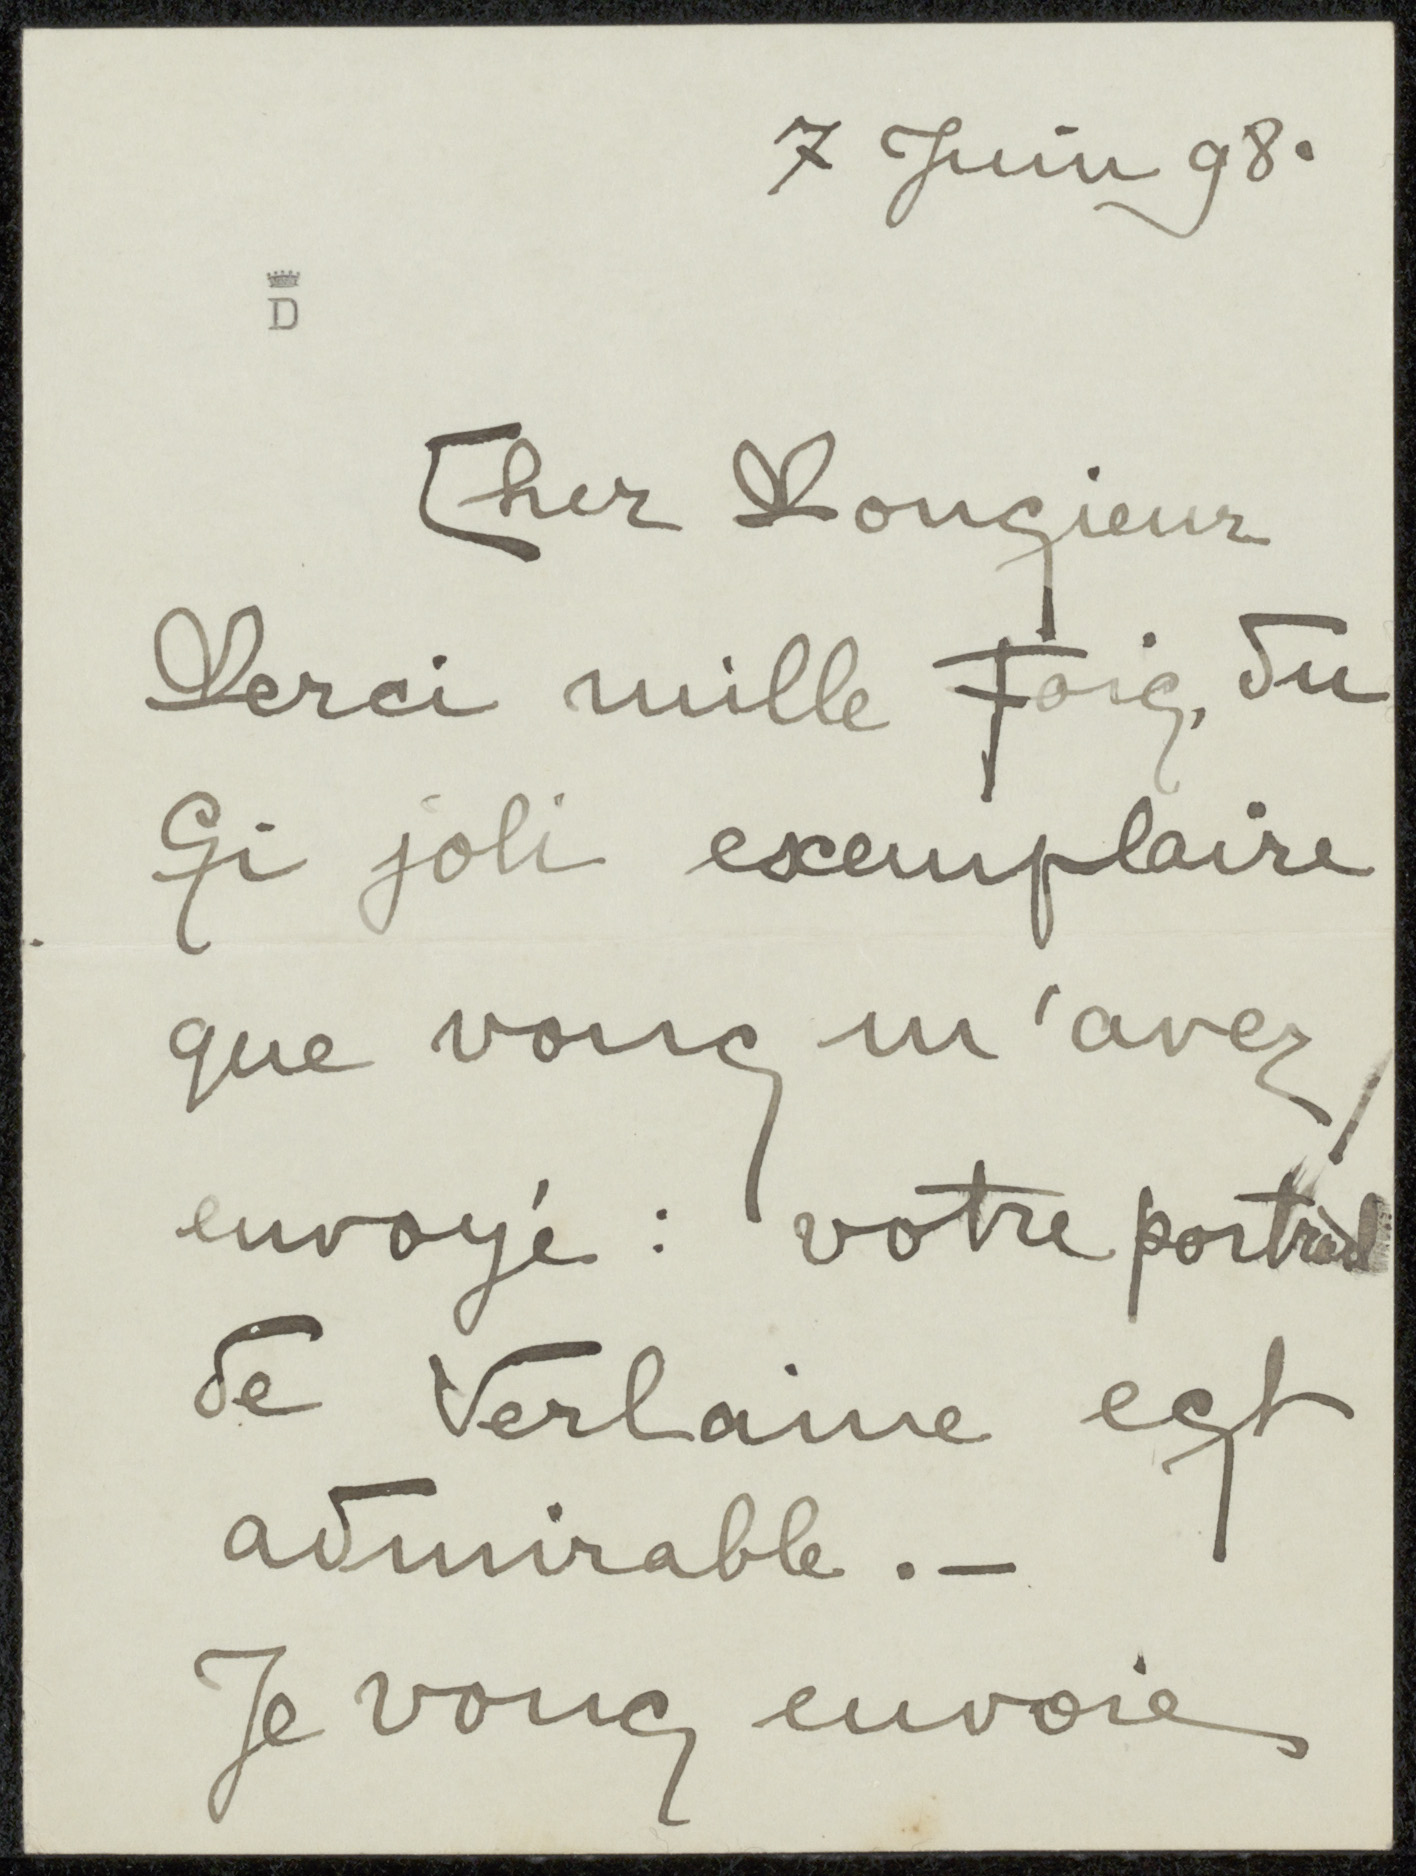 7 Juin 98.
D
Cher Monsieur
Merci mille fois, du
si joli exemplaire
que vous m'avez
envoyé : votre portrait
de Verlaine est
admirable . —
Je vous envoie